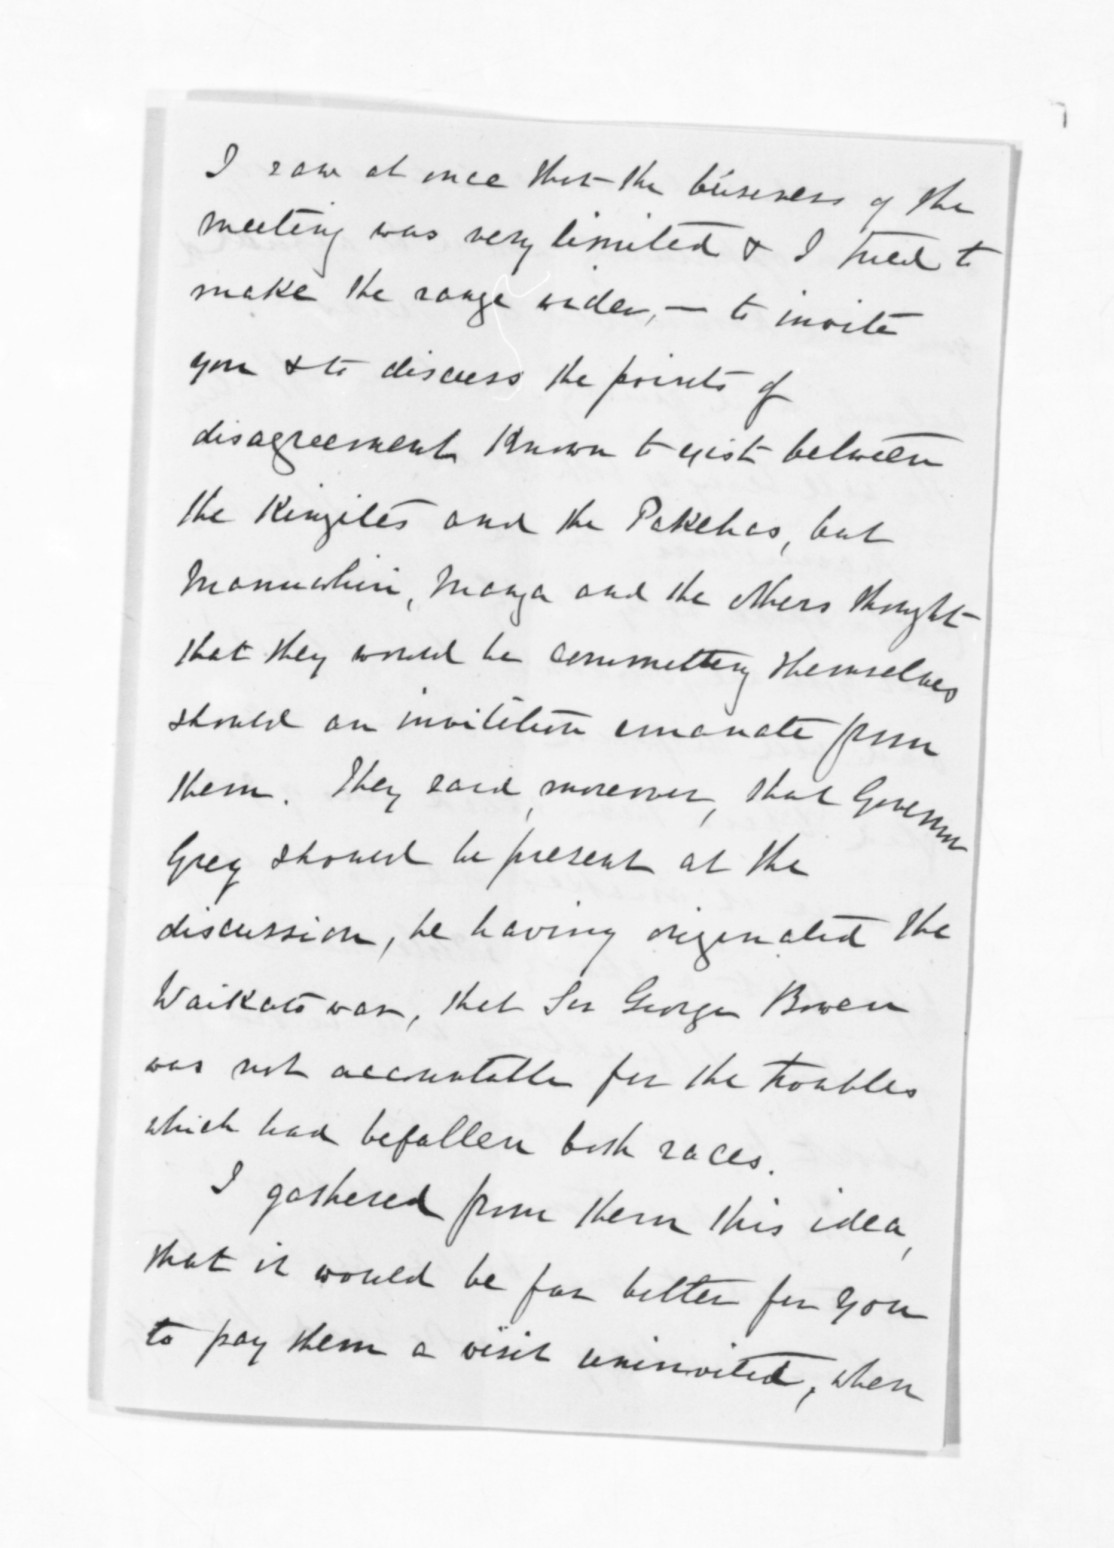 I saw at once that the business of the
meeting was very limited & I tried to
make the range wider, — to invite
you & to discuss the points of
disagreement known to exist between
the Kingites and the Pakehas, but
Manuwhiri, Manga and the others thought
that they would be committing themselves
should an invitition emanate from
them. They said, moreover, that Governor
Grey should be present at the
discussion, he having originated the
Waikato war, that Sir George Bowen
was not accountable for the troubles
which had befallen both races.
I gathered from them this idea,
that it would be far better for you
to pay them a visit uninvited, when